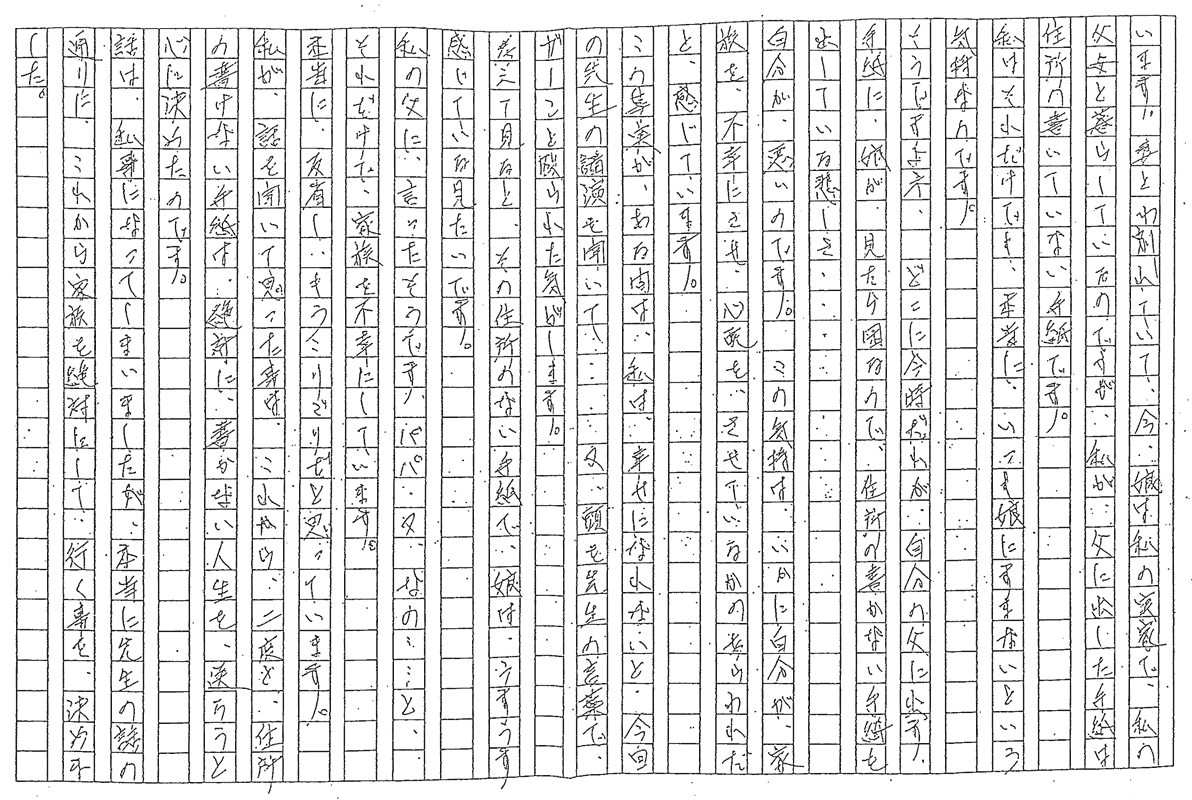 います。妻とわ別れていて、今、娘は私の実家で、私の
父母と暮らしているのですが、私が、父に出した手紙は
住所の書いていない手紙です。
私はそれだけです、本当に、いつも娘にすまないという
気持なのです。
そうですよネ、どこに今時だれが、自分の父に出す、
手紙に、娘が、見たら困るので、住所の書かない手紙を
出している悲しさ、
自分が、悪いのです。この気持は、いかに自分が、家
族を、不幸にさせ、心配を、させているかの表われだ
と、感じています。
この事実が、ある間は、私は、幸せになれないと、今回
の先生の講演を聞いて、又、頭を先生の言葉で、
ガーンと殴られた気がします。
考えて見ると、その住所のない手紙で、娘は、うすうす
感じている見たいです。
私の父に、言ったそうです、パパ、又、なの……と、
それだけ、家族を不幸にしています。
本当に、反省し、もうこりごりだと思っています。
私が、話を聞いて思った事は、これから、二度と、住所
の書けない手紙は、絶対に、書かない人生を、送ろうと
心に決めたのです。
話は、私事になってしまいましたが、本当に先生の話の
通りに、これから家族を絶対にして、行く事を、決めま
した。